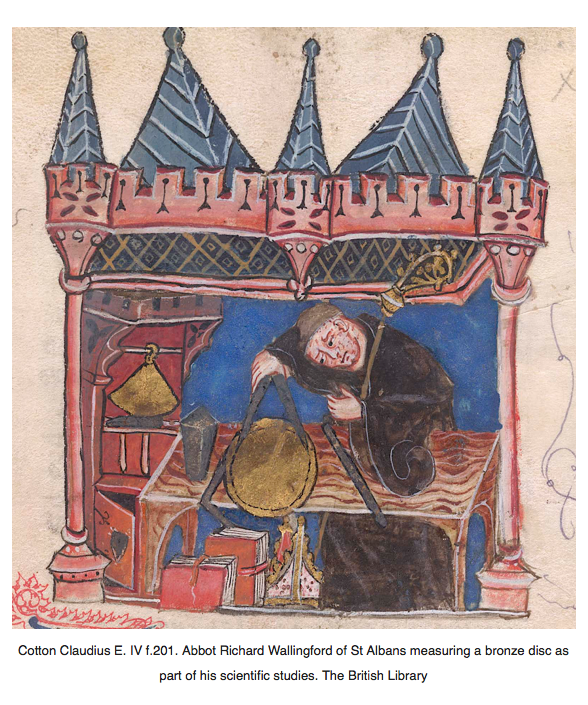 Cotton Claudius E. IV f.201. Abbot Richard Wallingford of St Albans measuring a bronze disc as
part of his scientific studies. The British Library